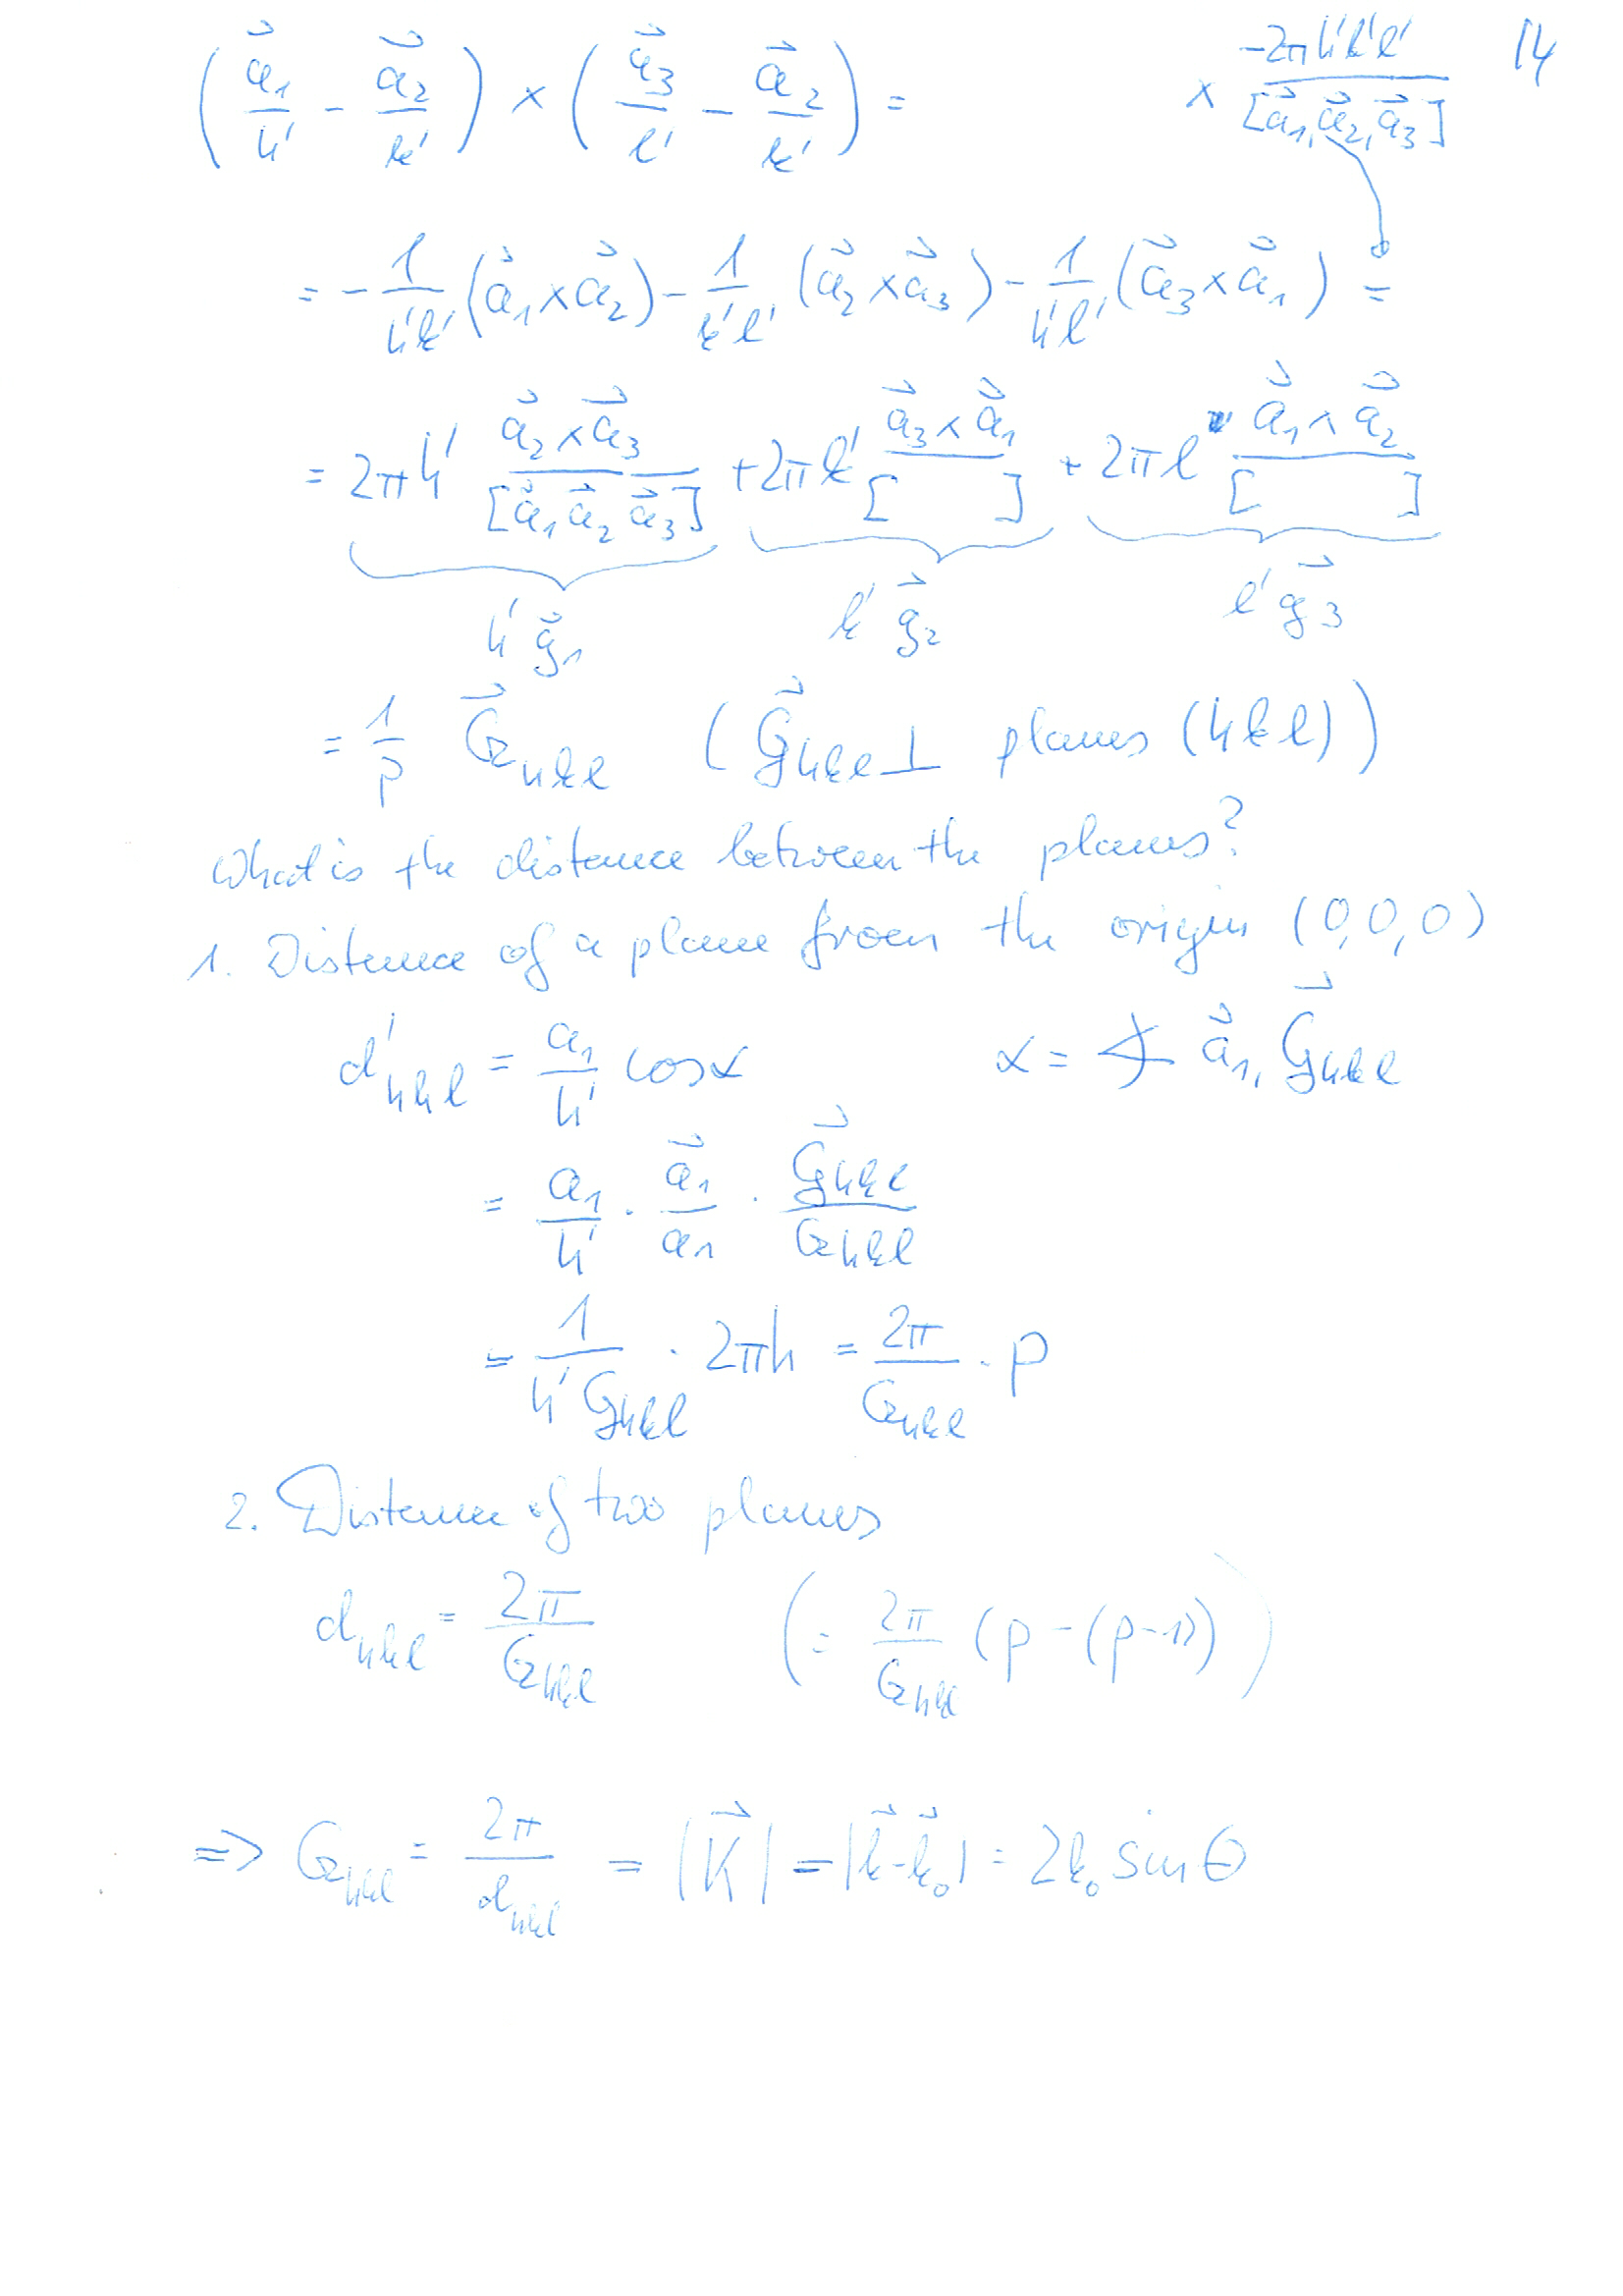 14
(a⃗₁/h′ − a⃗₂/k′) × (a⃗₃/l′ − a⃗₂/k′) = × −2πh′k′l′/[a⃗₁, a⃗₂, a⃗₃]
= −1/h′k′ (a⃗₁ × a⃗₂) − 1/k′l′ (a⃗₂ × a⃗₃) − 1/h′l′ (a⃗₃ × a⃗₁) =
= 2πh′ a⃗₂ × a⃗₃/[a⃗₁ a⃗₂ a⃗₃] + 2πk′ a⃗₃ × a⃗₁/[ ] + 2πl′ a⃗₁ × a⃗₂/[ ]
h′ g⃗₁ k′ g⃗₂ l′ g⃗₃
= 1/p G⃗hkl (G⃗hkl ⊥ planes (hkl))
What is the distance between the planes?
1. Distance of a plane from the origin (0,0,0)
d′hkl = a₁/h′ cosα α = ∢ a⃗₁, G⃗hkl
= a₁/h′ · a⃗₁/a₁ · G⃗hkl/Ghkl
= 1/h′Ghkl · 2πh = 2π/Ghkl · p
2. Distance of two planes
dhkl = 2π/Ghkl (= 2π/Ghkl (p − (p−1)))
⇒ Ghkl = 2π/dhkl = |K⃗| = |k⃗−k⃗₀| = 2k₀ sin θ